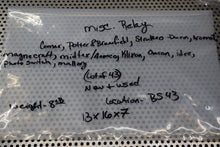 misc. Relay
Comar, Potter & Brumfield, Struthers-Dunn,
magnecraft, midtex/Aemco, Allison, Omron, idec,
photo switch, mallory
(Lot of 43)
New + used
weight - 8 lb
Location - BS 43
13x16x7